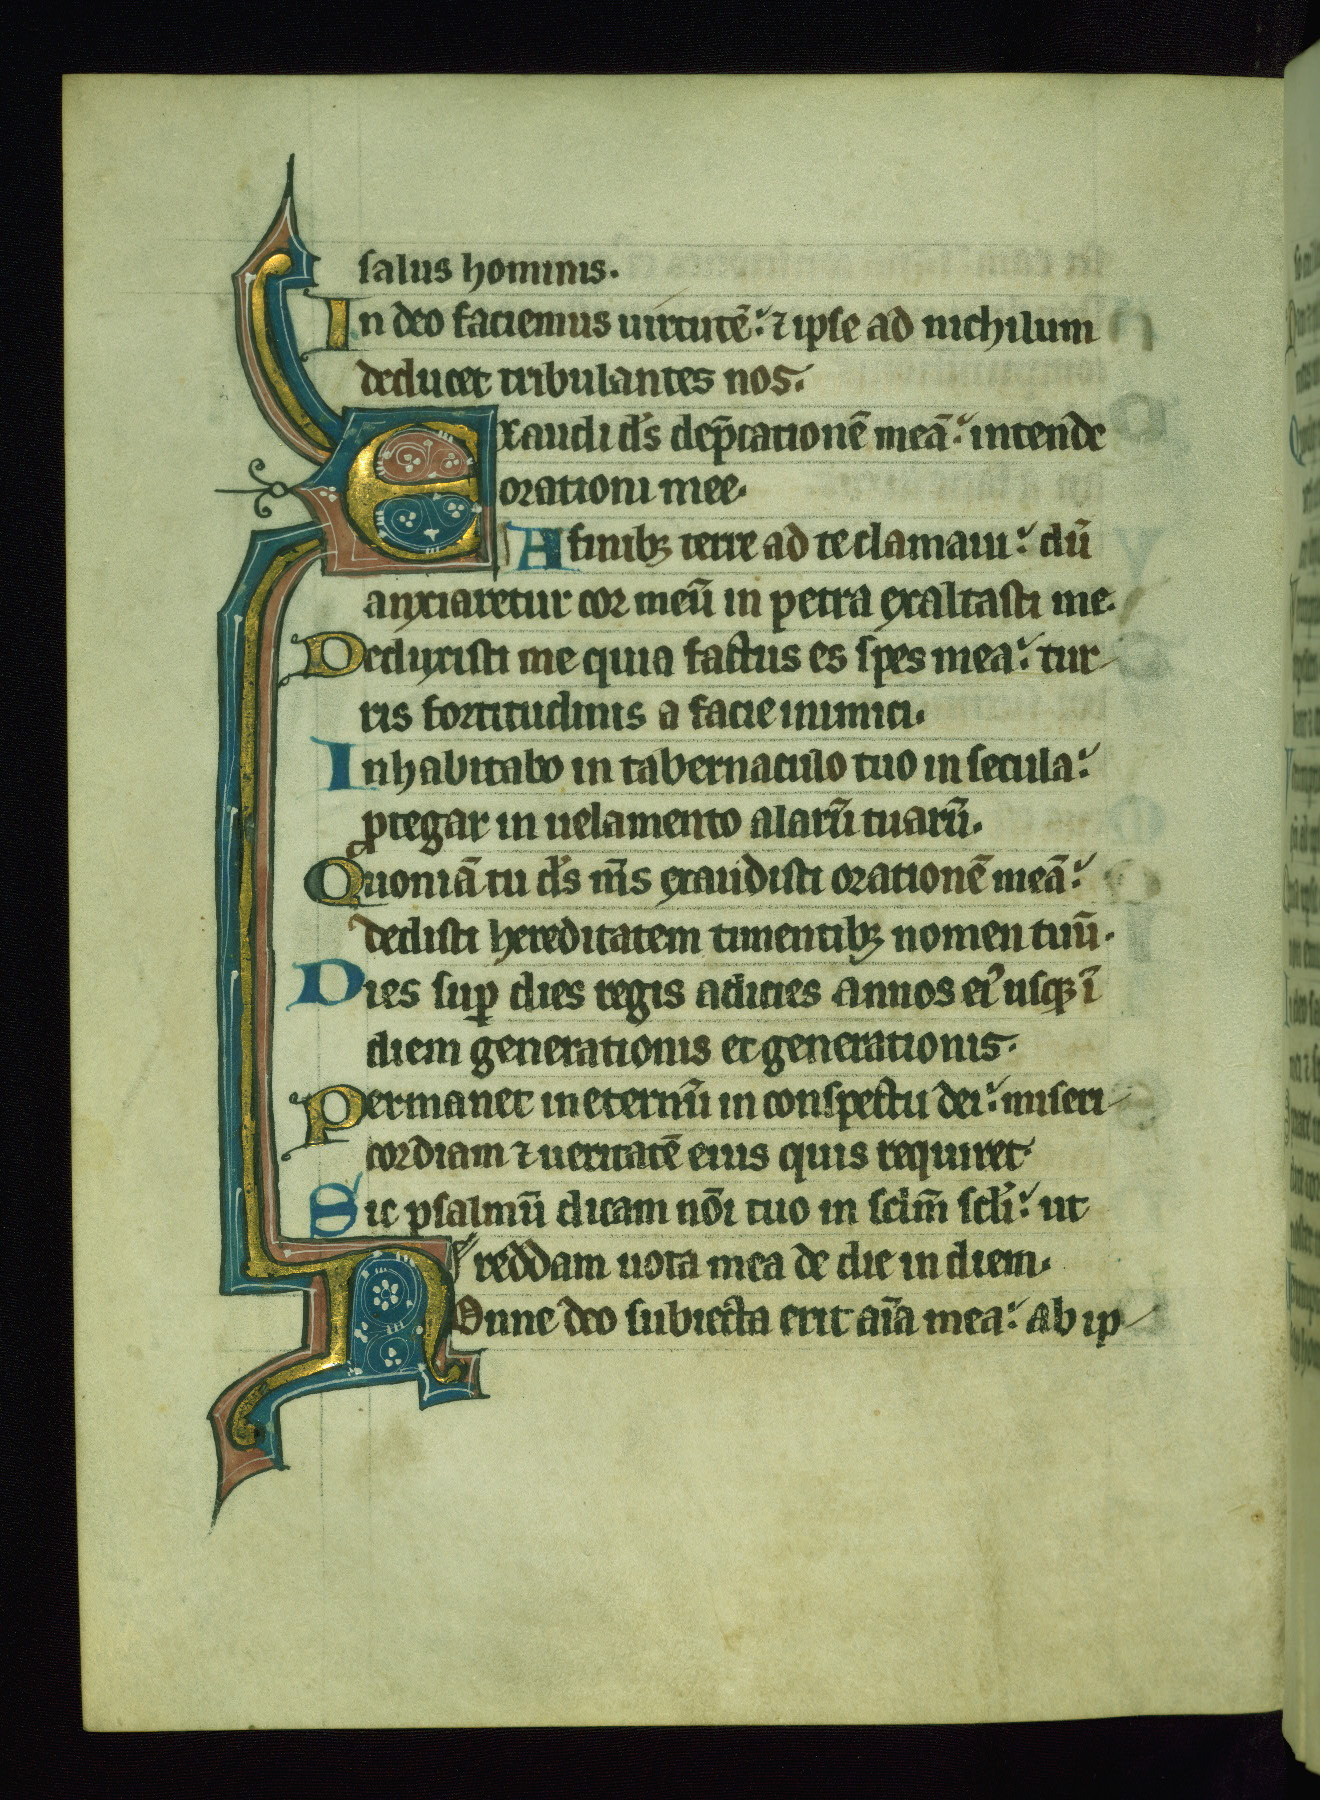 salus hominis.
In deo faciemus uirtutē: ⁊ ipse ad nichilum
deducet tribulantes nos.
Exaudi d̄s dep̄cationē meā: intende
orationi mee.
A finibꝫ terre ad te clamaui: dū
anxiaretur cor meū in petra exaltasti me.
Deduxisti me quia factus es spes mea: tur
ris fortitudinis a facie inimici.
Inhabitabo in tabernaculo tuo in secula:
ꝓtegar in uelamento alarū tuarū.
Quoniā tu d̄s m̄s exaudisti orationē meā:
dedisti hereditatem timentibꝫ nomen tuū.
Dies suꝑ dies regis adicies annos eiꝰ usqꝫ ī
diem generationis et generationis.
Permanet in eternū in conspectu dei: miseri
cordiam ⁊ ueritatē eius quis requiret
Sic psalmū dicam nōi tuo in sclm̄ scli: ut
reddam uota mea de die in diem.
Nonne deo subiecta erit aīa mea: ab ip